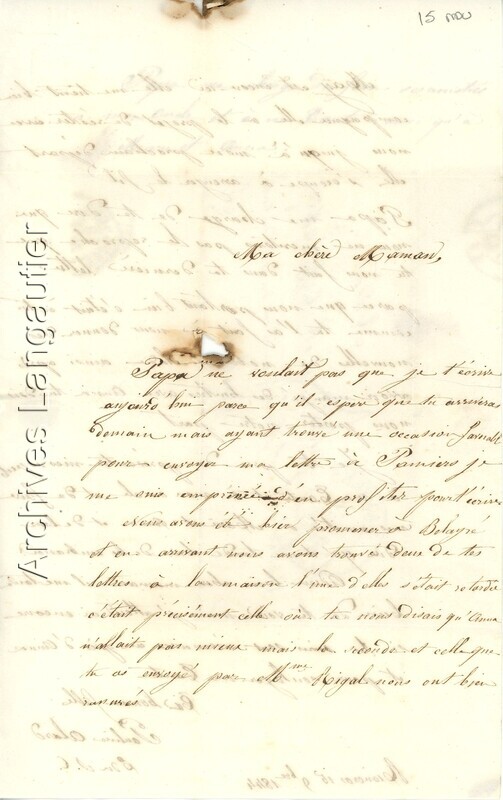 15 nov
Ma chère Maman,
Papa ne voulait pas que je t'écrive
aujourd hui parce qu'il espère que tu arriveras
demain mais ayant trouvé une occasion
pour envoyer ma lettre à Pamiers je
me suis empressée d'en profiter pour t'écrire
Nous avons été hier promener à
et en arrivant nous avons trouvé deux de tes
lettres à la maison l'une d'elles s'était retardée
c'était précisément celle où tu nous disais qu'Anna
n'allait pas mieux mais la seconde et celle que
tu as envoyé par Mme Rigal nous ont bien
rassurés
Archives Langautier